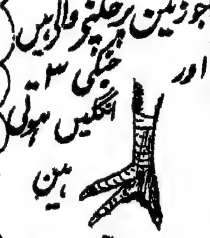 جو زمین پر چلنیوالی ہیں
اور جنکی ۳
انگلیں ہوتی
ہین